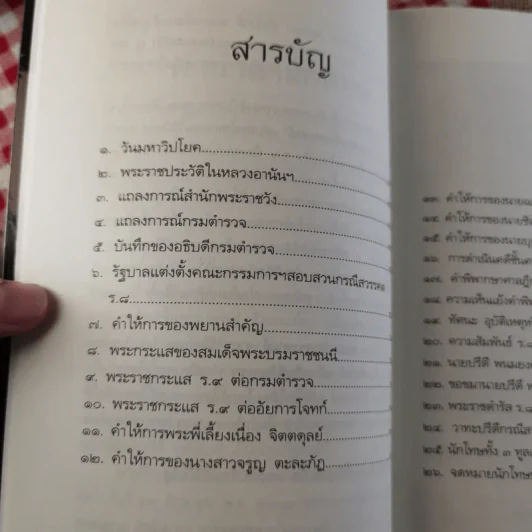 สารบัญ
๑. วันมหาวิปโยค
๒. พระราชประวัติในหลวงอานันฯ
๓. แถลงการณ์สำนักพระราชวัง
๔. แถลงการณ์กรมตำรวจ
๕. บันทึกของอธิบดีกรมตำรวจ
๖. รัฐบาลแต่งตั้งคณะกรรมการฯสอบสวนกรณีสวรรคต
ร.๘
๗. คำให้การของพยานสำคัญ
๘. พระกระแสของสมเด็จพระบรมราชชนนี
๙. พระราชกระแส ร.๙ ต่อกรมตำรวจ
๑๐. พระราชกระแส ร.๙ ต่ออัยการโจทก์
๑๑. คำให้การพระพี่เลี้ยงเนื่อง จิตตดุลย์
๑๒. คำให้การของนางสาวจรูญ ตะละภัฏ
๑๓. คำให้การของนาย
๑๔. คำให้การของนาย
๑๕. คำให้การของนาย
๑๖. การดำเนินคดีชั้น
๑๗. คำพิพากษาศาลฎีก
๑๘. ความเห็นแย้งคำพิ
๑๙. ทัศนะ อุบัติเหตุ
๒๐. ความสัมพันธ์ ร.๘
๒๑. นายปรีดี พนมยง
๒๒. ขอขมานายปรีดี พ
๒๓. พระราชดำรัส ร.
๒๔. วาทะปรีดีกรณีส
๒๕. นักโทษทั้ง ๓ ทูล
๒๖. จดหมายนักโทษ